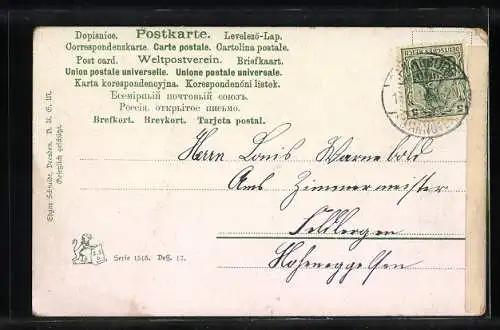 Dopisnice. Postkarte. Levelező-Lap.
Correspondenzkarte. Carte postale. Cartolina postale.
Post card. Weltpostverein. Briefkaart.
Union postale universelle. Unione postale universale.
Karta korespondencyjna. Korespondenčni listek.
Всемірный почтовый союзъ.
Россія. открытое письмо.
Brefkort. Brevkort. Tarjeta postal.
Herrn Louis Warnebold
Amb Zimmermeister
Feldbergen
Hoheneggelsen
Serie 1515. Deß. 17.
Edgar Schmidt, Dresden. D. R. G. M.
Gesetzlich geschützt.